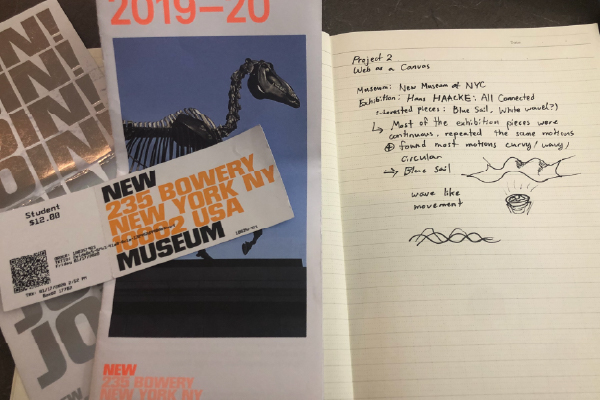 2019–20
NEW
235 BOWERY
NEW YORK NY
10002 USA
MUSEUM
Student
$12.00
NEW
235 BOWERY
NEW YORK NY
Project 2
Web as a Canvas
Museum: New Museum of NYC
Exhibition: Hans HAACKE: All Connected
pieces: Blue Sail, White wave(?)
Most of the exhibition pieces were
continuous, repeated the same motions
found most motions curvy/wavy/
circular
Blue Sail
wave like
movement